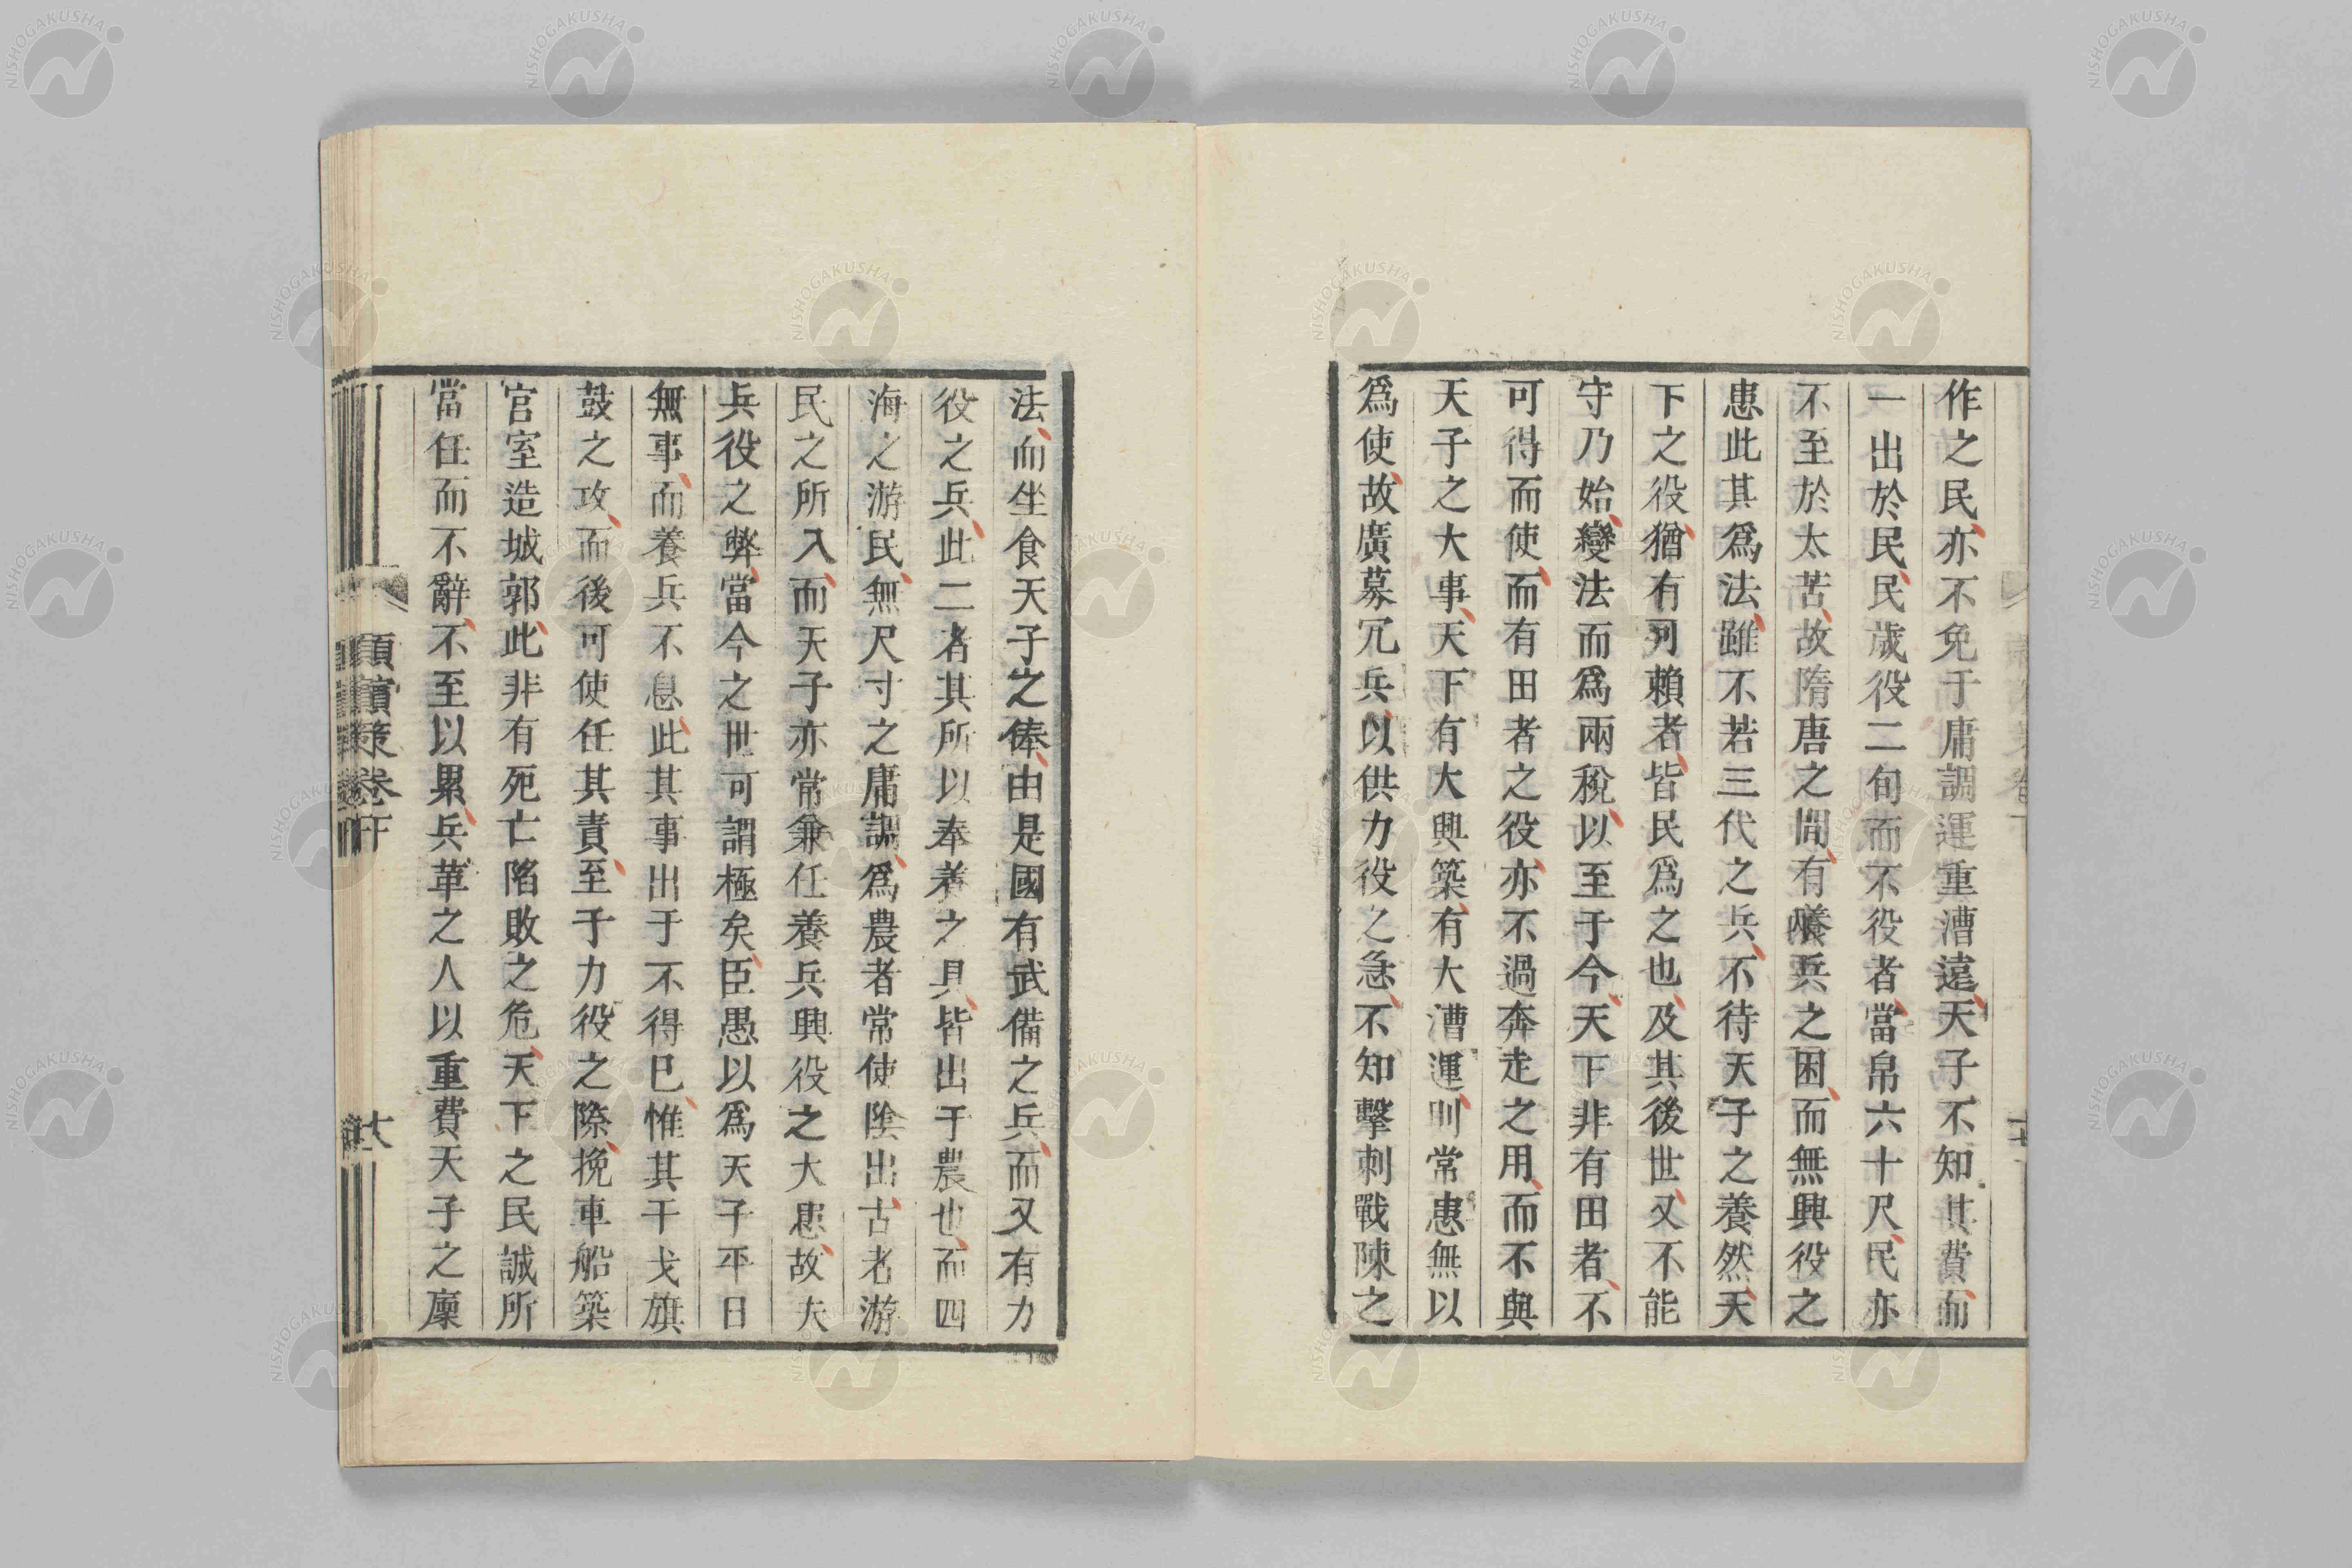 作之民亦不免于庸調運重漕遠天子不知其費而
一出於民民歲役二旬而不役者當帛六十尺民亦
不至於太苦故隋唐之間有養兵之困而無興役之
患此其爲法雖不若三代之兵不待天子之養然天
下之役猶有可賴者皆民爲之也及其後世又不能
守乃始變法而爲兩稅以至于今天下非有田者不
可得而使而有田者之役亦不過奔走之用而不與
天子之大事天下有大興築有大漕運則常患無以
爲使故廣募冗兵以供力役之急不知擊刺戰陳之
法而坐食天子之俸由是國有武備之兵而又有力
役之兵此二者其所以奉養之具皆出于農也而四
海之游民無尺寸之庸調爲農者常使陰出古者游
民之所入而天子亦常兼任養兵興役之大患故夫
兵役之弊當今之世可謂極矣臣愚以爲天子平日
無事而養兵不息此其事出于不得已惟其干戈旗
鼓之攻而後可使任其責至于力役之際挽車船築
宮室造城郭此非有死亡陷敗之危天下之民誠所
當任而不辭不至以累兵革之人以重費天子之廩
頴濱策卷下
十八
NISHOGAKUSHA